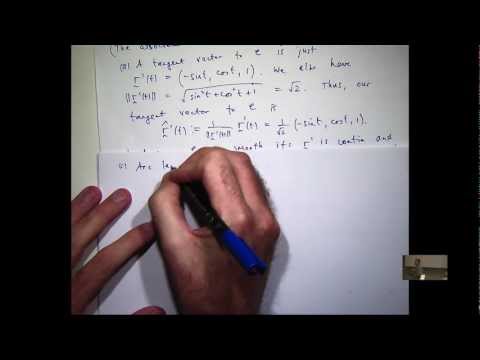 (The associa
(ii) A tangent vector to C is just
r'(t) = (-sint, cost, 1). We also have
||r'(t)|| = √(sin²t + cos²t + 1) = √2. Thus, our
tangent vector to C is
r̂'(t) := 1/||r'(t)|| r'(t) = 1/√2 (-sint, cost, 1).
smooth iff r' is contin and
Arc le